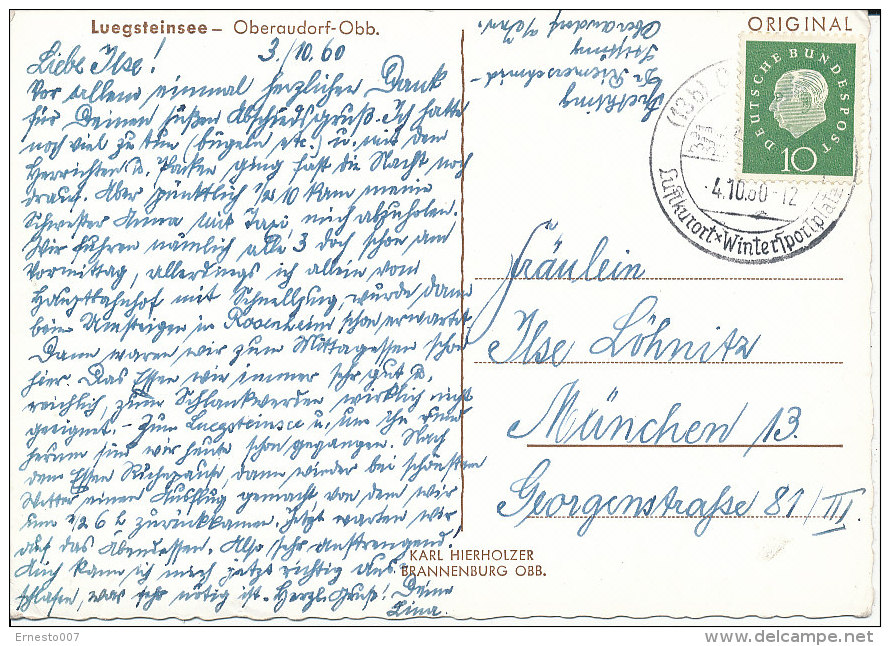 Luegsteinsee – Oberaudorf-Obb.
ORIGINAL
3./10.60
Liebe Ilse!
Vor allem einmal herzlichen Dank
für Deinen süßen Abschiedsgruß. Ich hatte
noch viel zu tun (bügeln etc.) u. mit dem
Herrichten u. Packen ging fast die Nacht noch
drauf. Aber pünktlich ½10 kam meine
Schwester Anna mit Taxi, mich abzuholen.
Wir fuhren nämlich alle 3 doch schon am
Vormittag, allerdings ich allein vom
Hauptbahnhof mit Schnellzug, wurde dann
beim Umsteigen in Rosenheim schon erwartet.
Dann waren wir zum Mittagessen schon
hier. Das Essen wie immer sehr gut u.
reichlich, zum Schlankwerden wirklich nicht
geeignet. – Zum Luegsteinsee u. um ihn rund
herum sind wir heute schon gegangen. Nach
dem Essen Ruhepause, dann wieder bei schönstem
Wetter einen Ausflug gemacht von dem wir
um ½6 h zurückkamen. Jetzt warten wir
auf das Abendessen. Also sehr anstrengend!
Auch kann ich mich jetzt richtig aus-
schlafen, was sehr nötig ist. Herzl. Gruß! Deine
Lina.
Dr Riemerschmid-
Stiftung
Oberaudorf a/Inn.
DEUTSCHE BUNDESPOST
10
(13b)
-4.10.60-12
Luftkurort × Wintersportplatz
Fräulein
Ilse Löhnitz
München 13.
Georgenstraße 81/III.
KARL HIERHOLZER
BRANNENBURG OBB.
Ernesto007
delcampe.net